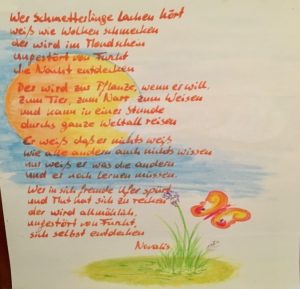 Wer Schmetterlinge lachen hört
weiß wie Wolken schmecken
der wird im Mondschein
ungestört von Furcht
die Nacht entdecken
Der wird zur Pflanze, wenn er will,
zum Tier, zum Narr zum Weisen
und kann in einer Stunde
durchs ganze Weltall reisen
Er weiß daß er nichts weiß
wie alle andern auch nichts wissen
nur weiß er was die andern
und er noch lernen müssen.
Wer in sich fremde Ufer spürt
und Mut hat sich zu recken
der wird allmählich,
ungestört von Furcht,
sich selbst entdecken
Novalis